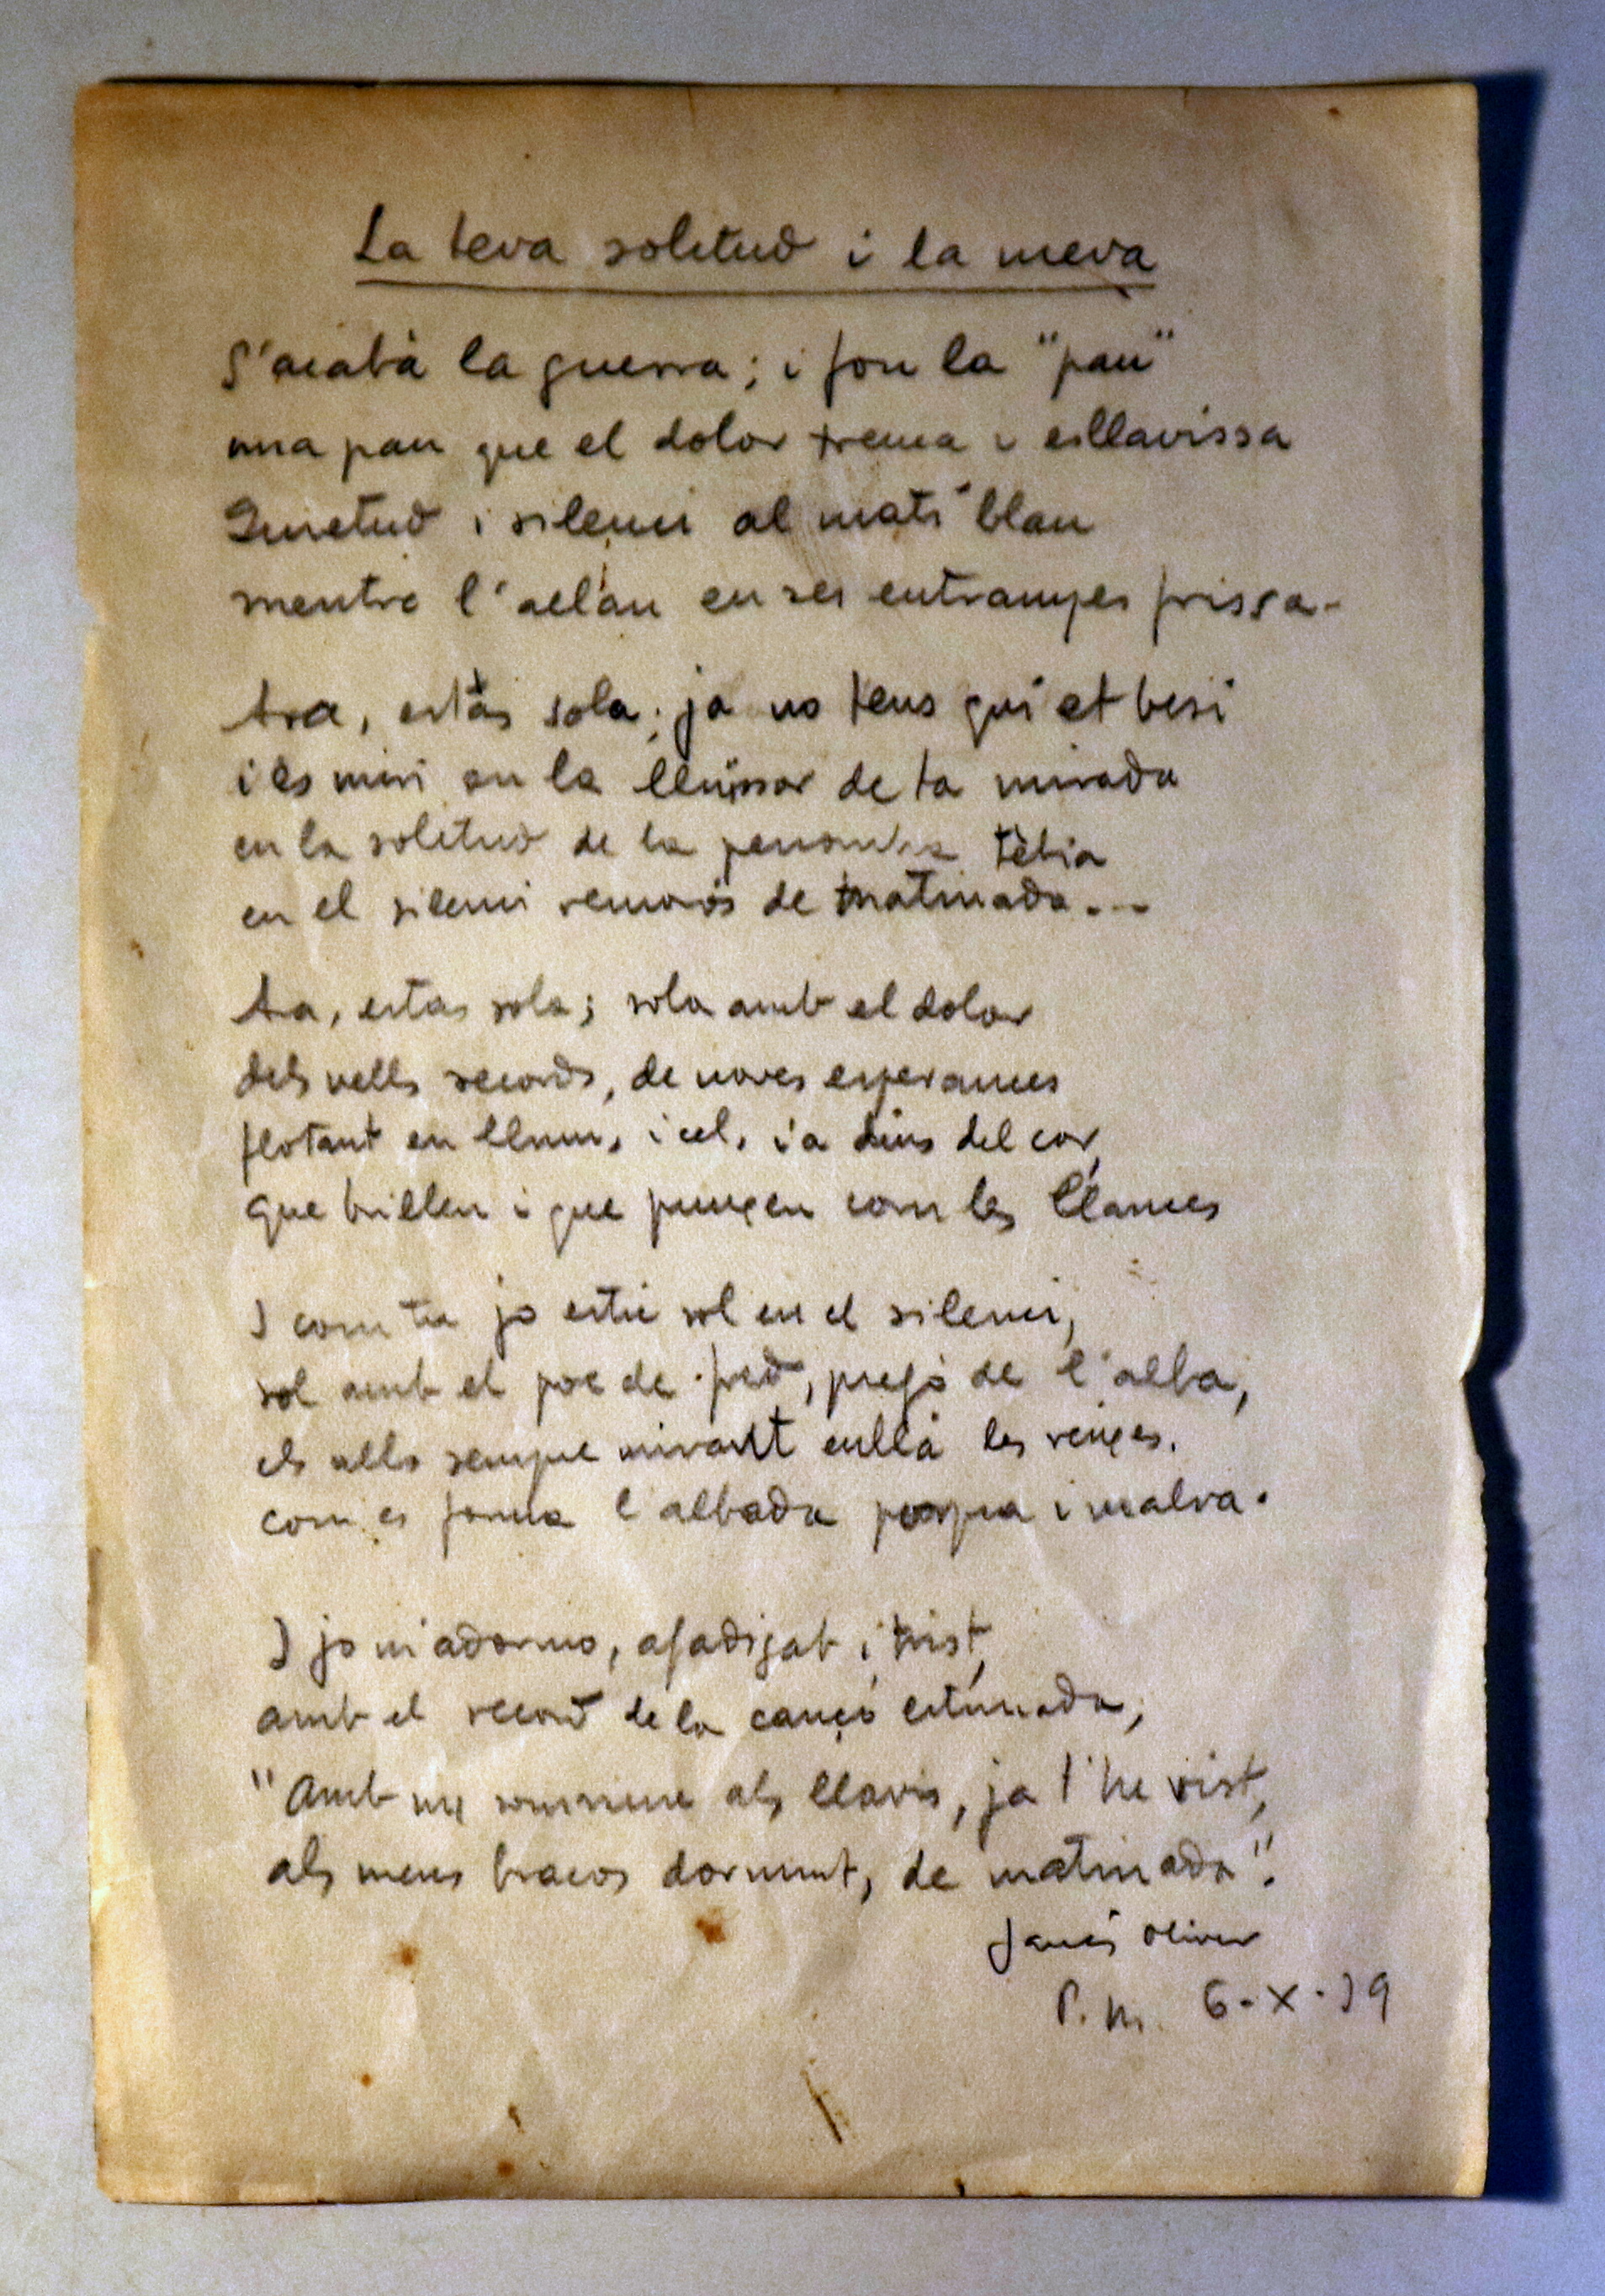 La teva soletud i la meva
S'acabà la guerra; i fou la "pau"
una pau que el dolor trenca i esllavissa
Quietud i silenci al matí blau
mentre l'aelau en ses entranyes frissa.
Ara, estàs sola; ja no tens qui et besi
i es miri en la lluïssor de ta mirada
en la soletud de la penombra tèbia
en el silenci remorós de matinada...
Ara, estas sola; sola amb el dolor
dels vells records, de noves esperances
flotant en llum, i cel, i a dins del cor,
que brillen i que punçen com les llances
I com tu jo estic sol en el silenci,
sol amb el poc de fred, pregó de l'alba,
els ulls sempre mirant enllà les reixes.
com es forma l'albada porpra i malva.
I jo m'adormo, afadigat i trist,
amb el record de la cançó estimada;
"Amb un somriure als llavis, ja t'he vist,
als meus braços dormint, de matinada".
Oliver
P.M. 6-X-39